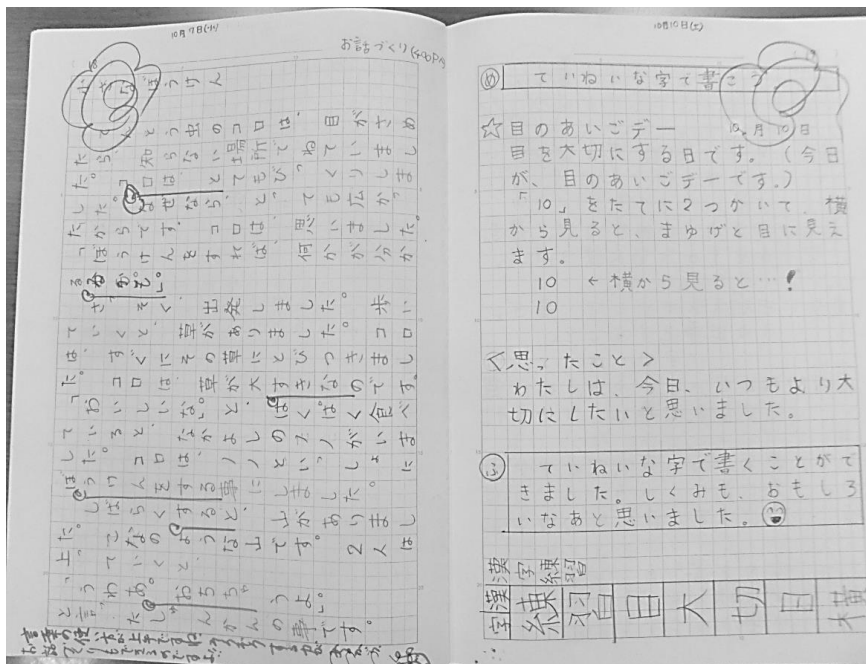 10月7日(水)
お話づくり(400P)
ぼうけん
てんとう虫のコロは、目がさめ
たら、知らない場所でねていまし
た。コロは、とてもびっくりしま
した。なぜなら、とても広かっ
たからです。コロは、思いました。
「ぼうけんをすれば、何かが分か
るかも。」
さっそく、出発しました。歩い
ていくと、草がありました。コロ
は、すぐにその草にとびつきまし
た。コロは、草が大すきなのです。
「おいしいな。」と、ぱくぱく食べ
ていると、なかよしのノノがいま
した。コロは、ノノといっしょに
ぼうけんをする事にしました。
しばらくすると、山がありまし
のような山です。2人は
ていくと、
「うわあ。おちちゃうよ。」
の事です。
10月10日(土)
め ていねいな字で書こう
☆目のあいごデー 10月10日
目を大切にする日です。(今日
が、目のあいごデーです。)
「10」をたてに2つかいて、横
から見ると、まゆげと目に見え
ます。
10 ←横から見ると…!
10
<思ったこと>
わたしは、今日、いつもより大
切にしたいと思いました。
ふ ていねいな字で書くことがで
きました。しくみも、おもしろ
いなあと思いました。
漢字練習
漢字 練 習 目 大 切 日 横